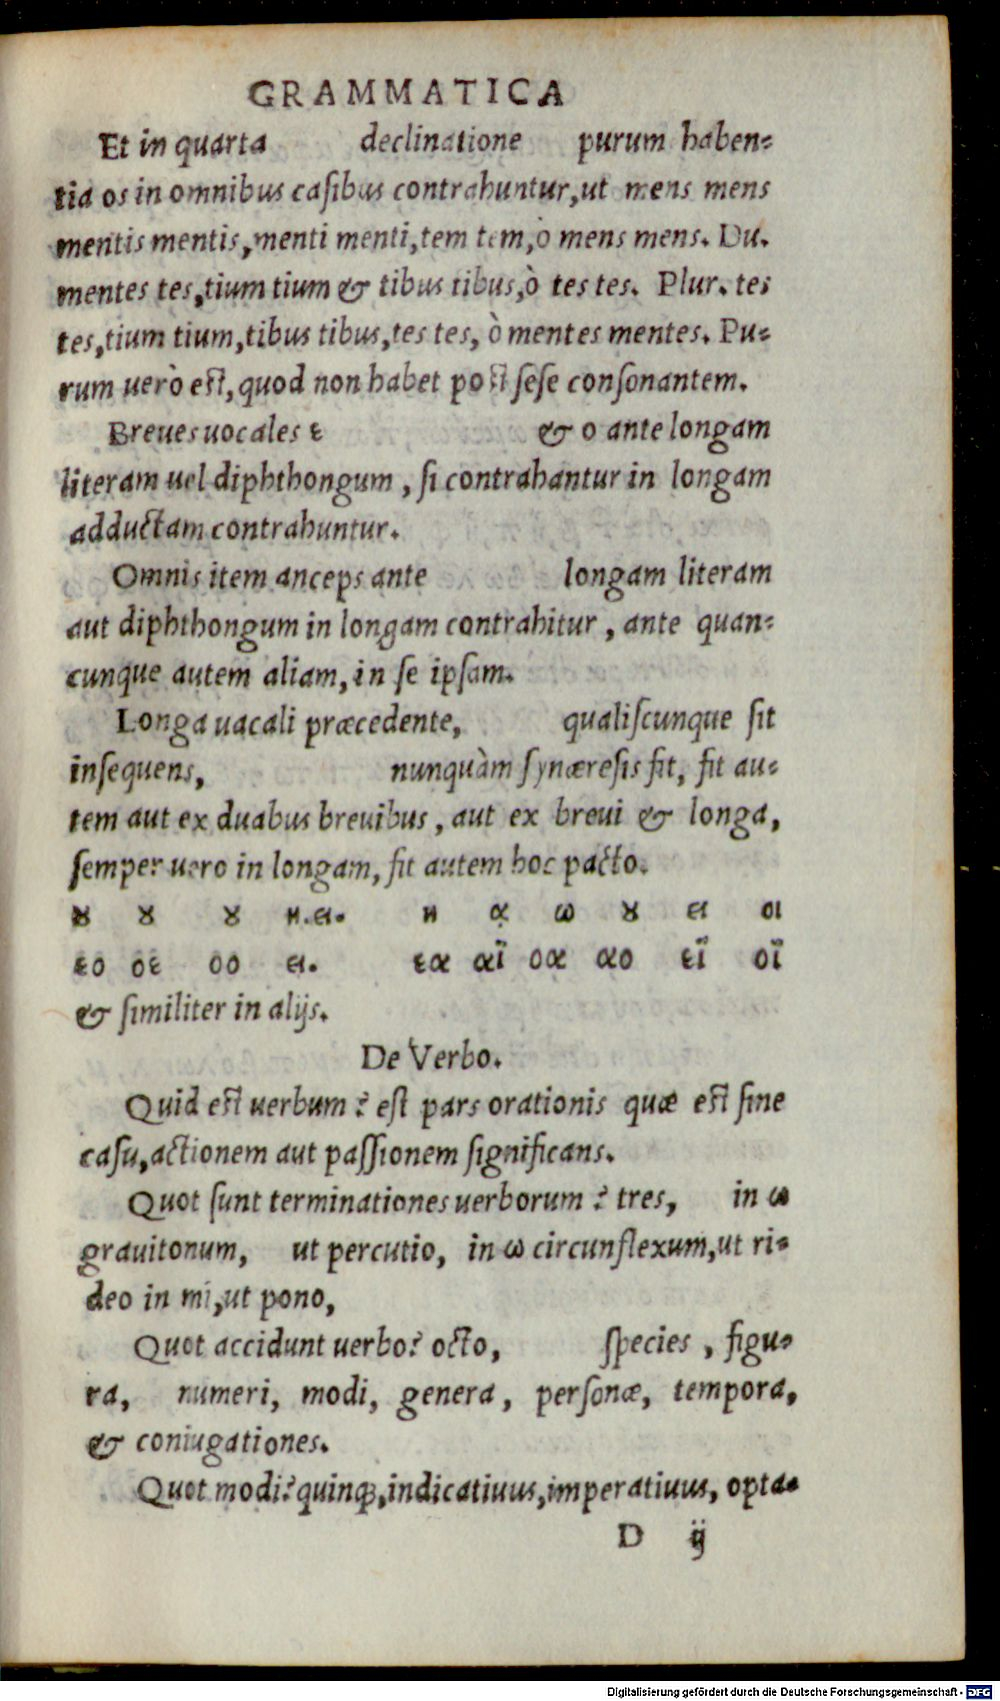 GRAMMATICA
Et in quarta declinatione purum haben-
tia os in omnibus casibus contrahuntur, ut mens mens
mentis mentis, menti menti, tem tem, ò mens mens. Du.
mentes tes, tium tium & tibus tibus, ò tes tes. Plur. tes
tes, tium tium, tibus tibus, tes tes, ò mentes mentes. Pu-
rum verò est, quod non habet post sese consonantem.
Breues uocales ε & ο ante longam
literam uel diphthongum, si contrahantur in longam
adductam contrahuntur.
Omnis item anceps ante longam literam
aut diphthongum in longam contrahitur, ante quan-
cunque autem aliam, in se ipsam.
Longa uacali præcedente, qualiscunque sit
insequens, nunquàm synæresis fit, fit au-
tem aut ex duabus breuibus, aut ex breui & longa,
semper uero in longam, fit autem hoc pacto.
ȣ ȣ ȣ η.ει. η ᾳ ω ȣ ει οι
εο οε οο ει. εα αϊ οα αο εϊ οϊ
& similiter in alijs.
De Verbo.
Quid est uerbum? est pars orationis quæ est sine
casu, actionem aut passionem significans.
Quot sunt terminationes uerborum? tres, in ω
grauitonum, ut percutio, in ω circunflexum, ut ri-
deo in mi, ut pono,
Quot accidunt uerbo? octo, species, figu-
ra, numeri, modi, genera, personæ, tempora,
& coniugationes.
Quot modi? quinq;, indicatiuus, imperatiuus, opta-
D ij
Digitalisierung gefördert durch die Deutsche Forschungsgemeinschaft - DFG